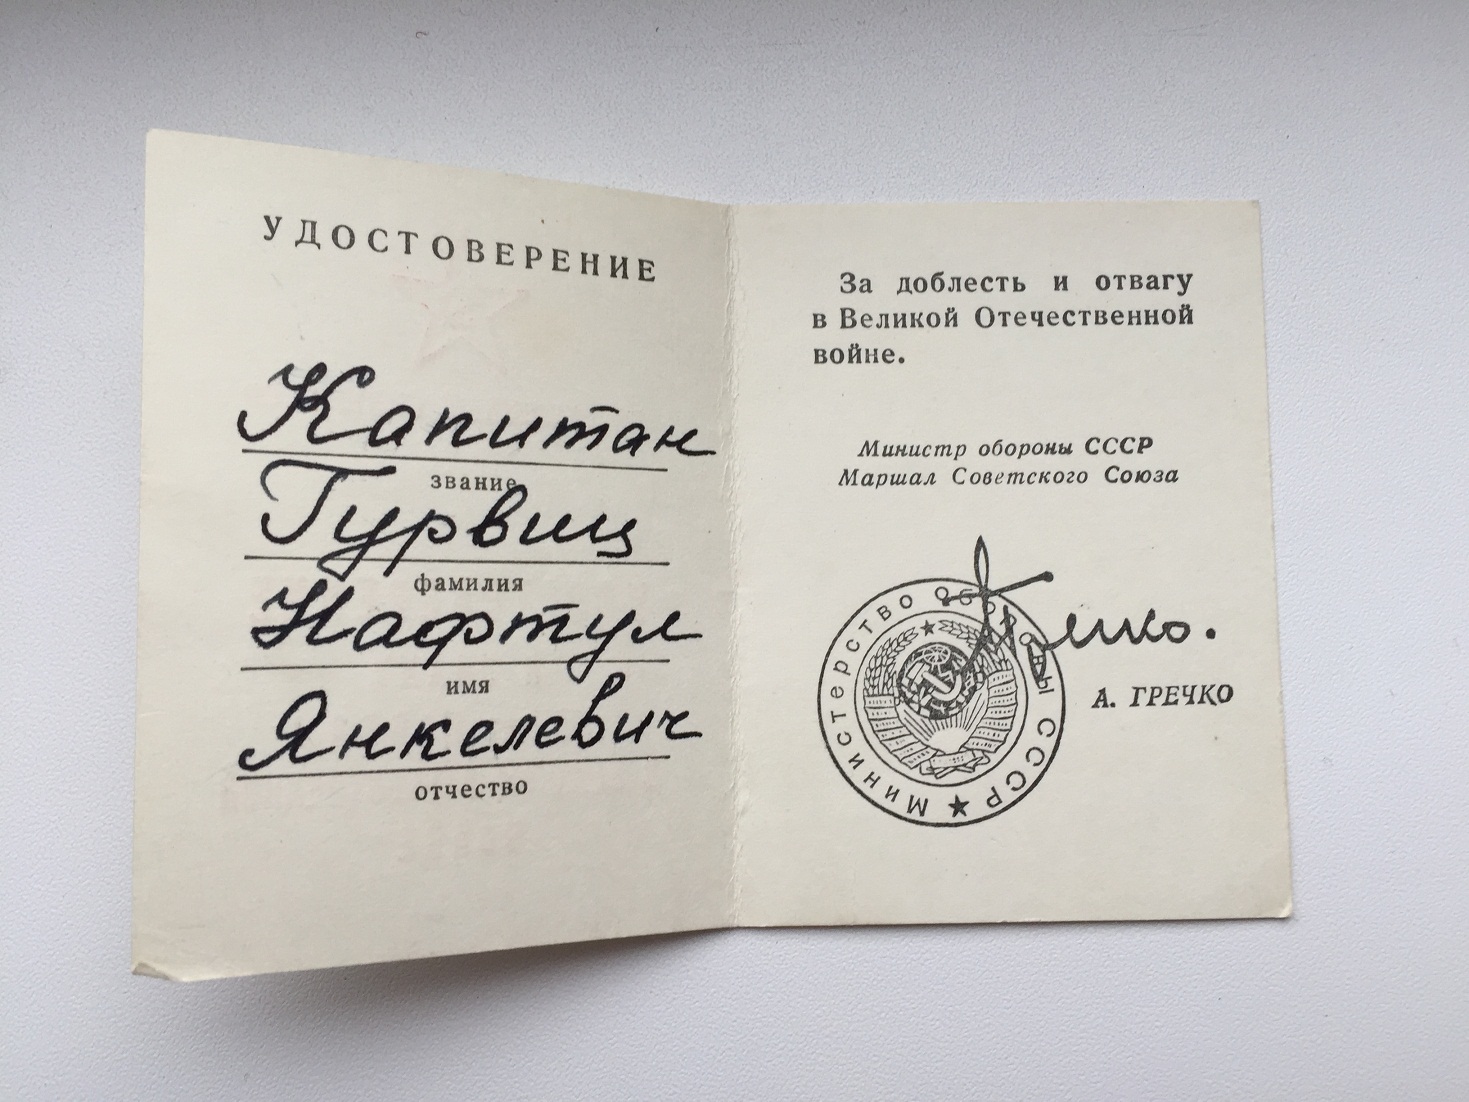 УДОСТОВЕРЕНИЕ
Капитан
звание
Гурвиц
фамилия
Нафтул
имя
Янкелевич
отчество
За доблесть и отвагу
в Великой Отечественной
войне.
Министр обороны СССР
Маршал Советского Союза
Гречко.
А. ГРЕЧКО
МИНИСТЕРСТВО ОБОРОНЫ СССР